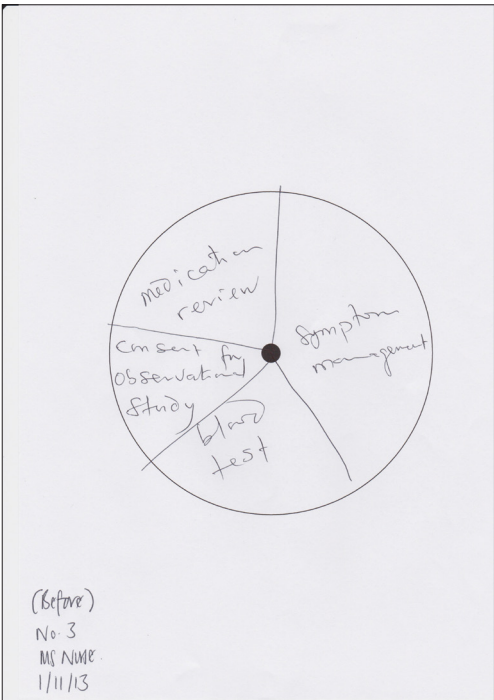 medication
review
symptom
management
consent for
observational
study
blood
test
(Before)
No. 3
MS Nurse.
1/11/13